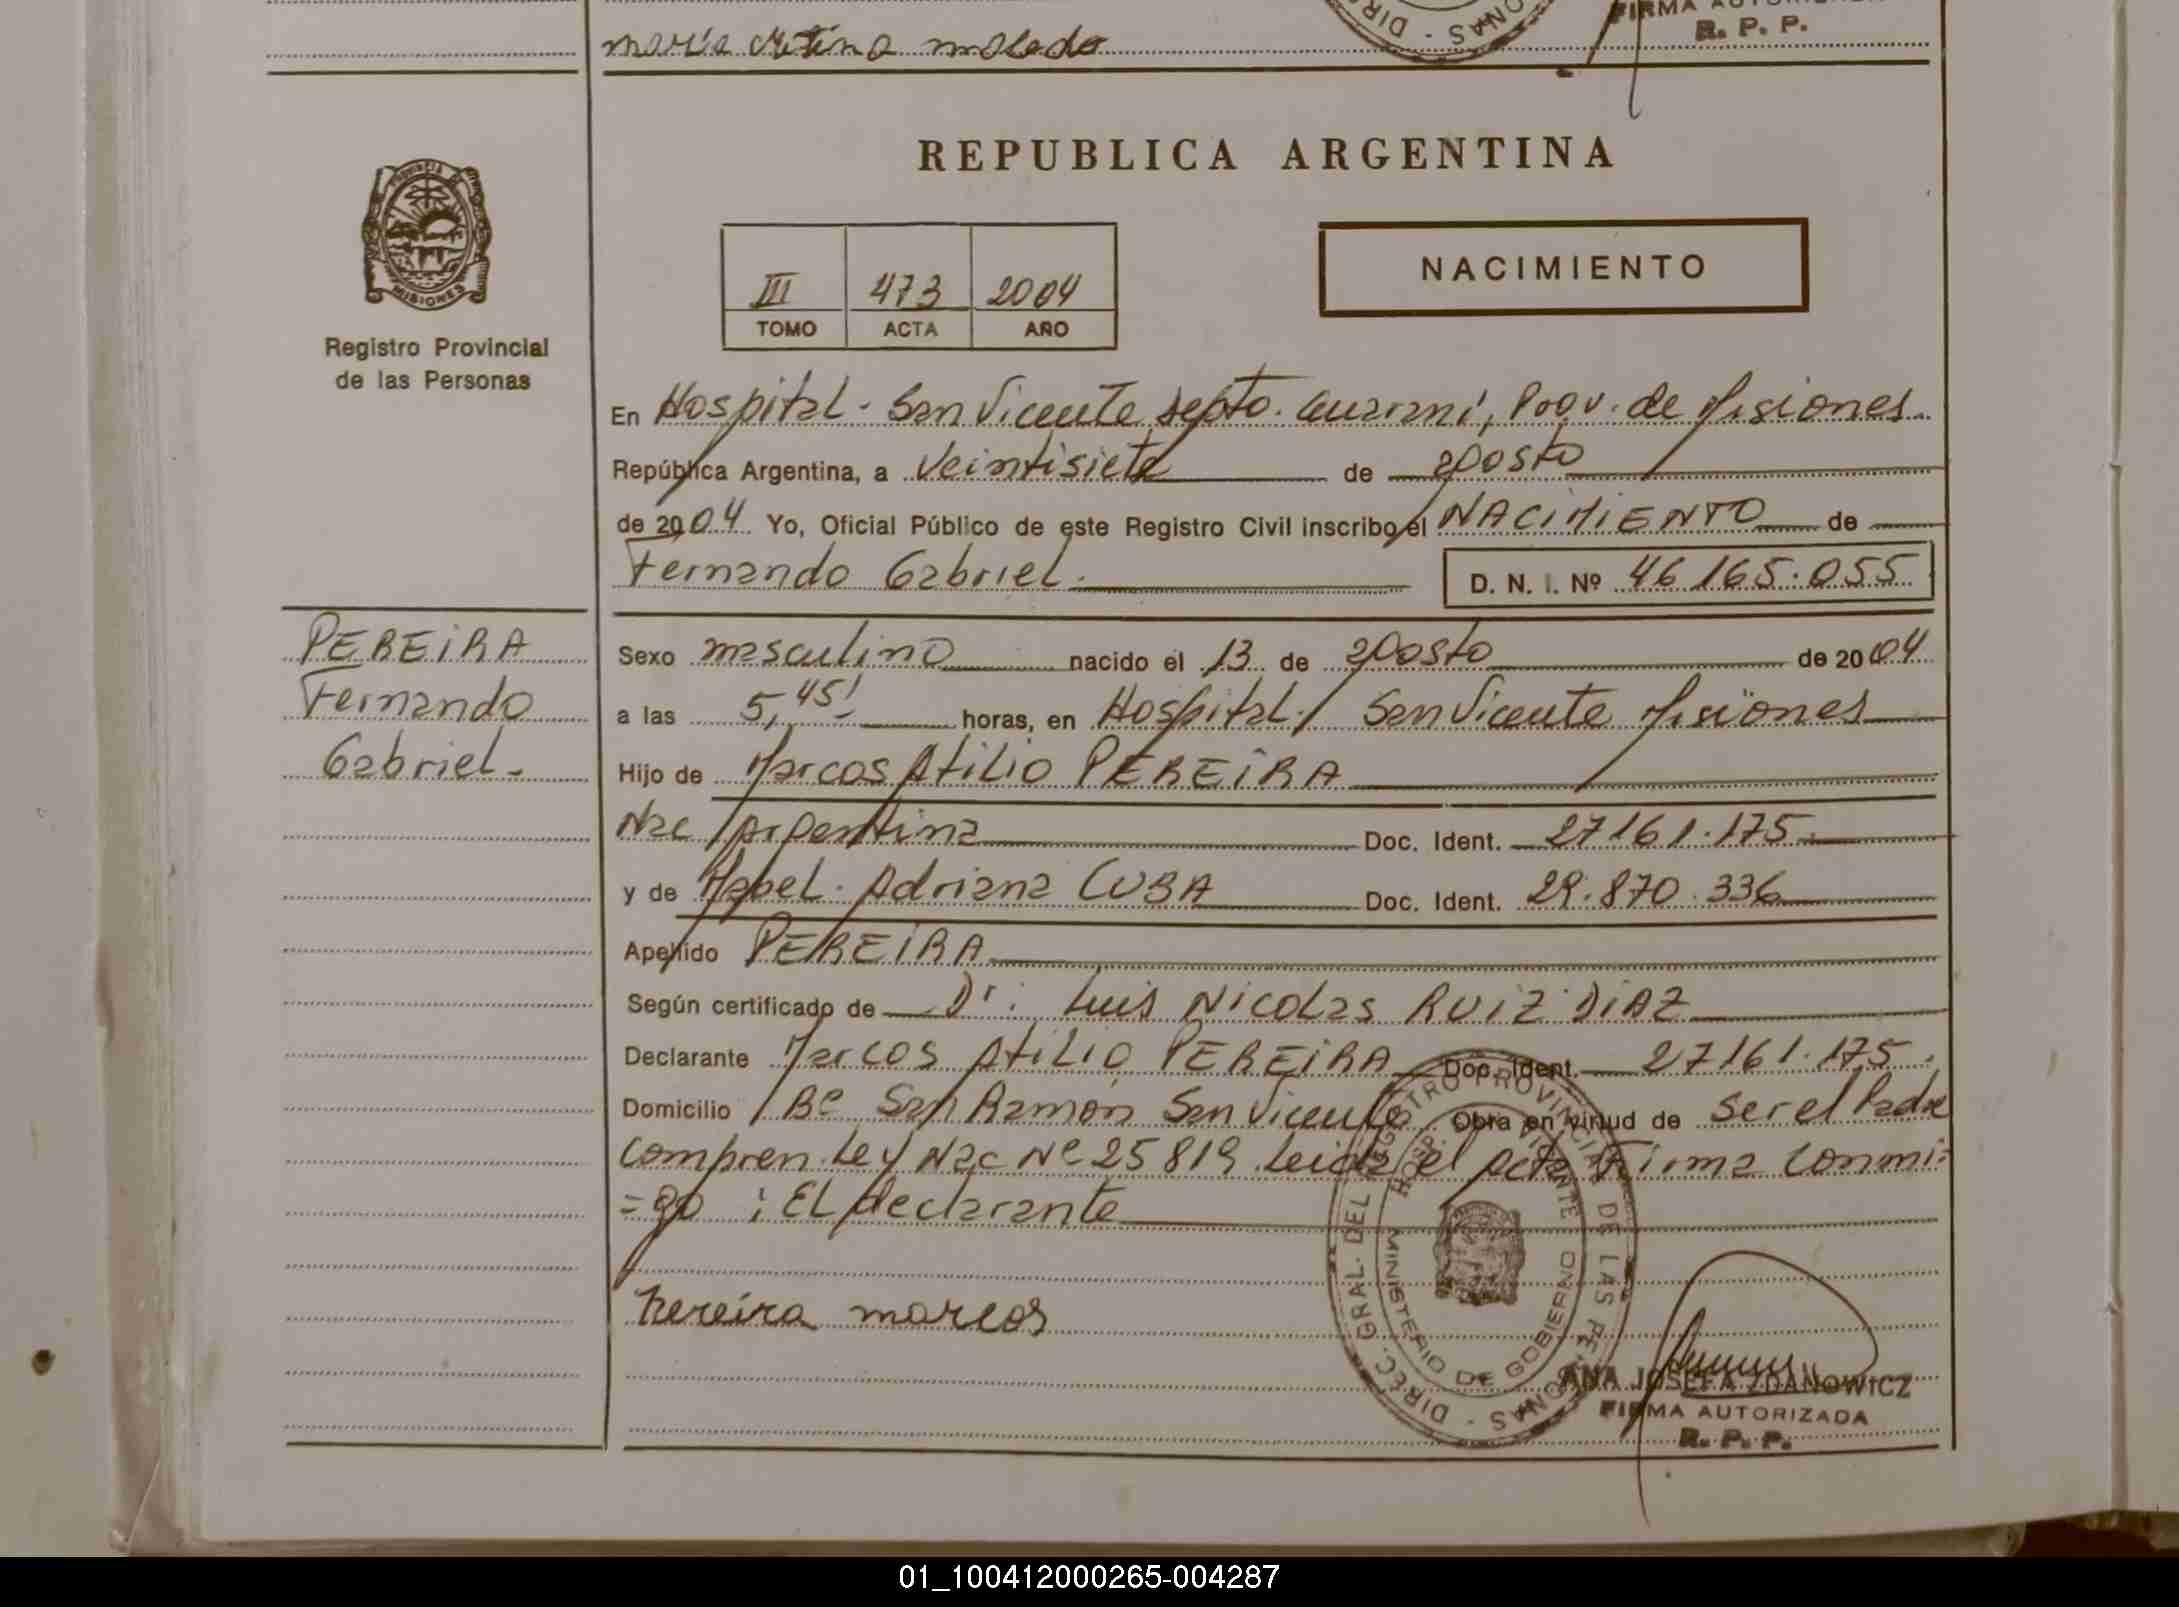 FIRMA AUTORIZADA
R. P. P.
REPUBLICA ARGENTINA
PROVINCIA DE MISIONES
Registro Provincial
de las Personas
III 473 2004
TOMO ACTA AÑO
NACIMIENTO
En Hospital - San Vicente Depto. Guaraní, Prov. de Misiones
República Argentina, a Veintisiete de agosto
de 2004 Yo, Oficial Público de este Registro Civil inscribo el NACIMIENTO de
Fernando Gabriel. D. N. I. Nº 46165.055
PEREIRA
Fernando
Gabriel -
Sexo masculino nacido el 13 de agosto de 2004
a las 5,45' horas, en Hospital / San Vicente Misiones
Hijo de Marcos Atilio PEREIRA
Nac Argentina Doc. Ident. 27161.175
y de Mabel Adriana CUBA Doc. Ident. 29.870.336
Apellido PEREIRA
Según certificado de Dr: Luis Nicolas RUIZ DIAZ
Declarante Marcos Atilio PEREIRA Doc. Ident. 27161.175.
Domicilio Bº San Ramon San Vicente Obra en virtud de ser el Padre
Compren. Ley Nac Nº 25819 Leida el acta Firma conmi=
=go : El declarante
Pereira marcos
DIREC. GRAL. DEL REGISTRO PROVINCIAL DE LAS PERSONAS
HOSP. VICENTE
MINISTERIO DE GOBIERNO
ANA JOSEFA ZDANOWICZ
FIRMA AUTORIZADA
R. P. P.
01_100412000265-004287